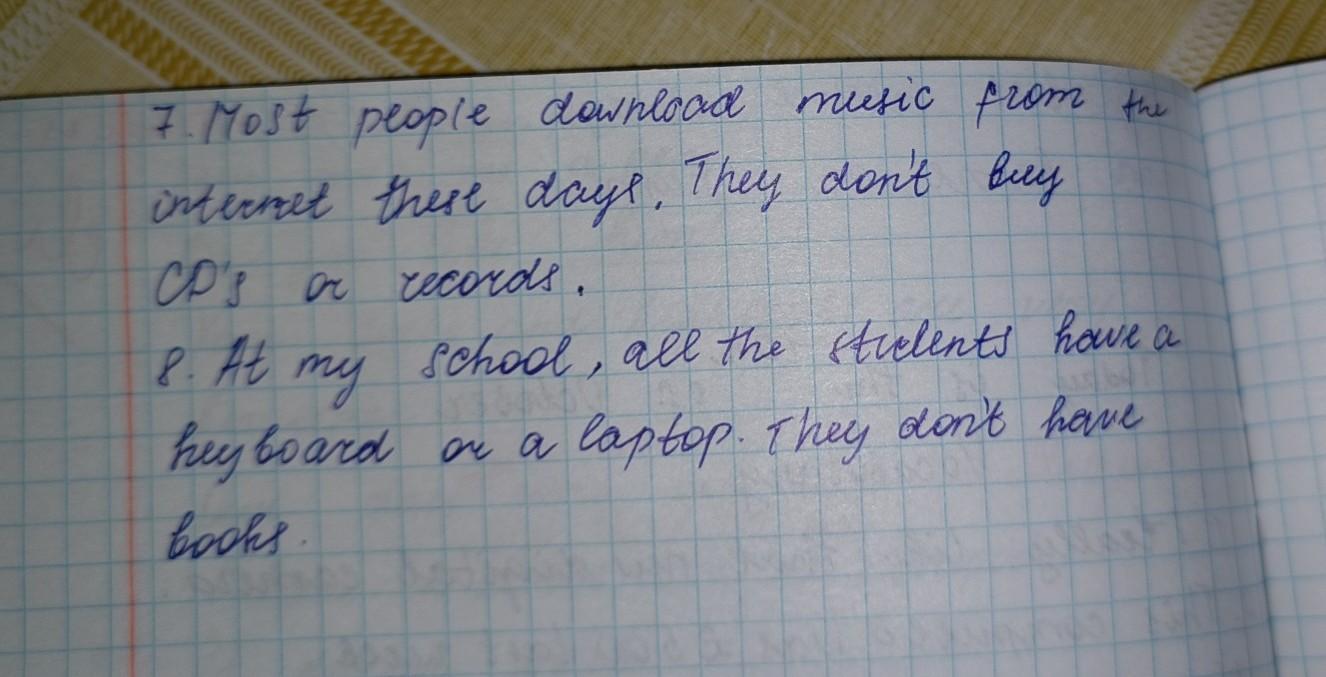 7. Most people download music from the
internet these days. They don't buy
CD's or records.
8. At my school, all the students have a
keyboard or a laptop. They don't have
books.